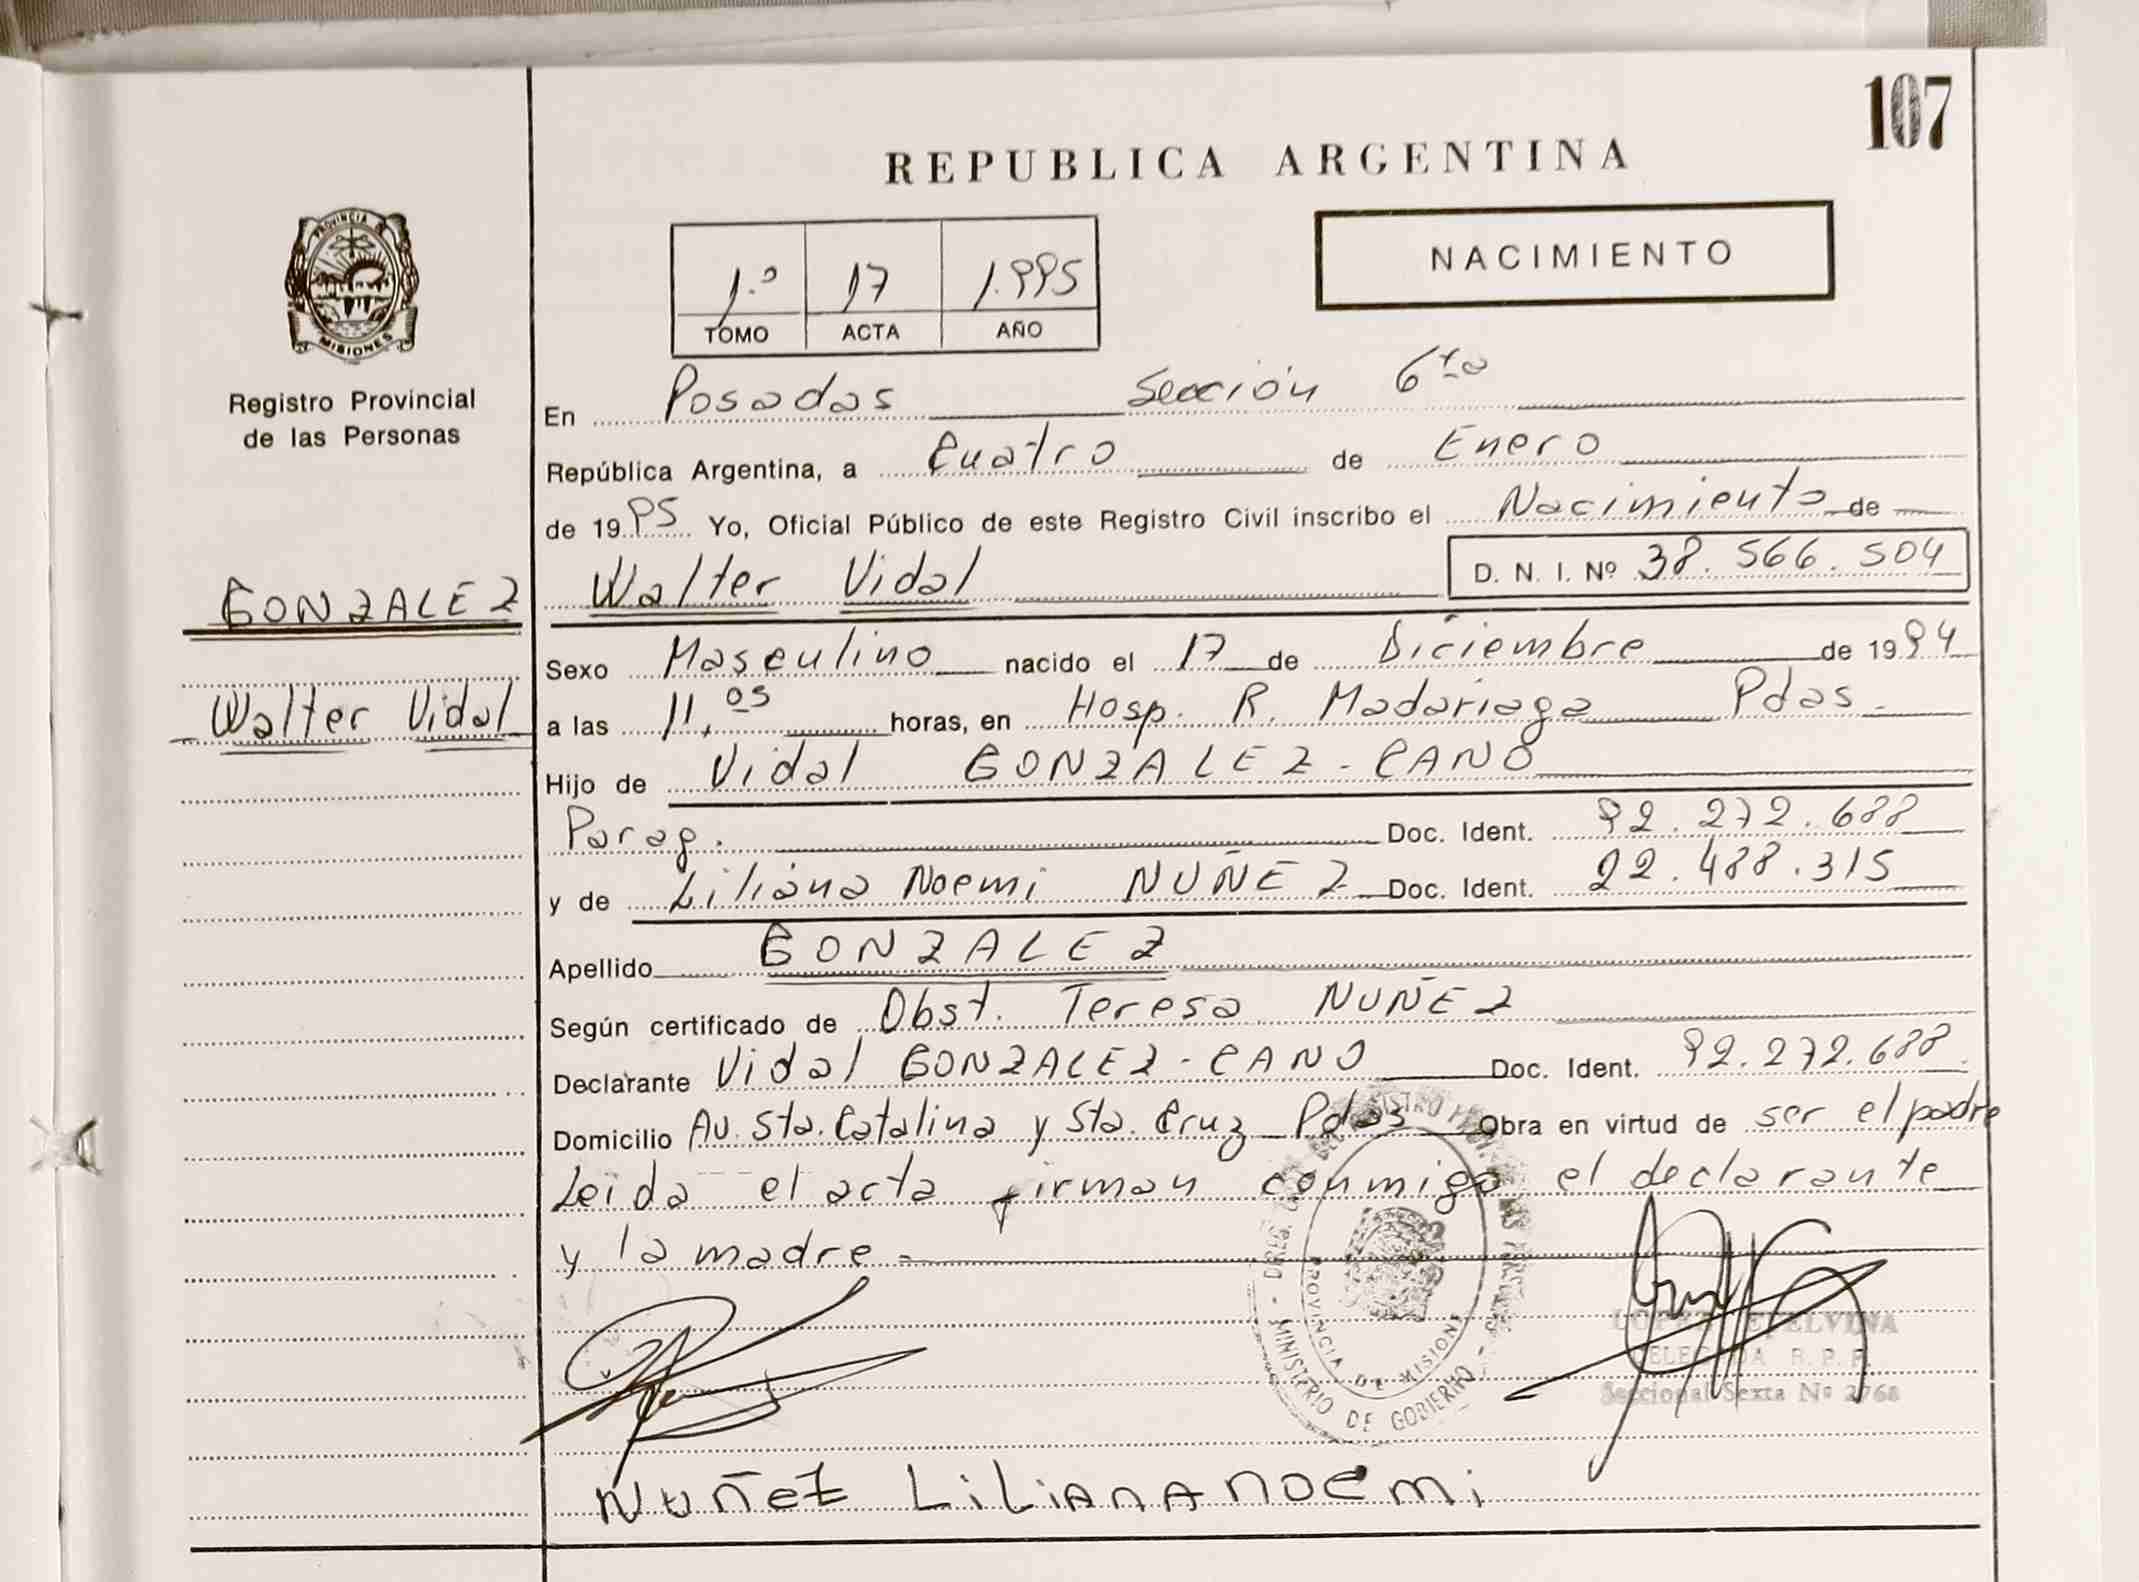 107
REPUBLICA ARGENTINA
PROVINCIA
MISIONES
Registro Provincial
de las Personas
1.º 17 1.995
TOMO ACTA AÑO
NACIMIENTO
En Posadas Sección 6ta
República Argentina, a Cuatro de Enero
de 1995 Yo, Oficial Público de este Registro Civil inscribo el Nacimiento de
GONZALEZ
Walter Vidal D. N. I. Nº 38.566.504
Sexo Masculino nacido el 17 de Diciembre de 1994
Walter Vidal
a las 11,05 horas, en Hosp. R. Madariaga Pdas.
Hijo de Vidal GONZALEZ-CANO
Parag. Doc. Ident. 92.272.688
y de Liliana Noemi NUÑEZ Doc. Ident. 22.488.315
Apellido GONZALEZ
Según certificado de Obst. Teresa NUÑEZ
Declarante Vidal GONZALEZ-CANO Doc. Ident. 92.272.688.
Domicilio Av. Sta. Catalina y Sta. Cruz Pdas Obra en virtud de ser el padre
Leida el acta firman conmigo el declarante
y la madre-
MINISTERIO DE GOBIERNO
PROVINCIA DE MISIONES
Seccional Sexta Nº 2768
NUÑEZ LILIANA NOEMI